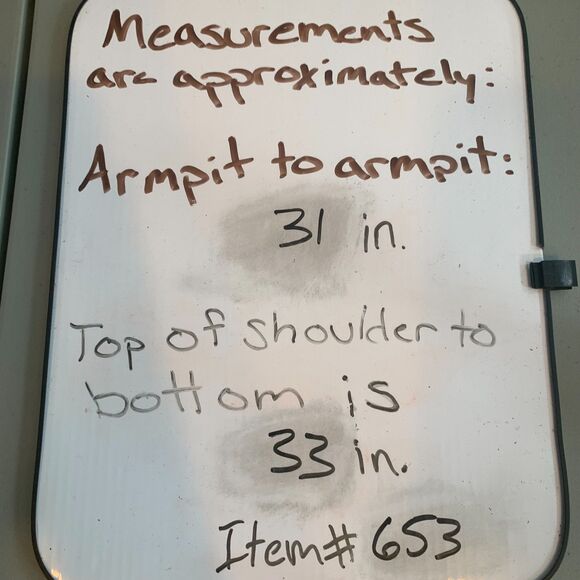 Measurements
are approximately:
Armpit to armpit:
31 in.
Top of shoulder to
bottom is
33 in.
Item# 653